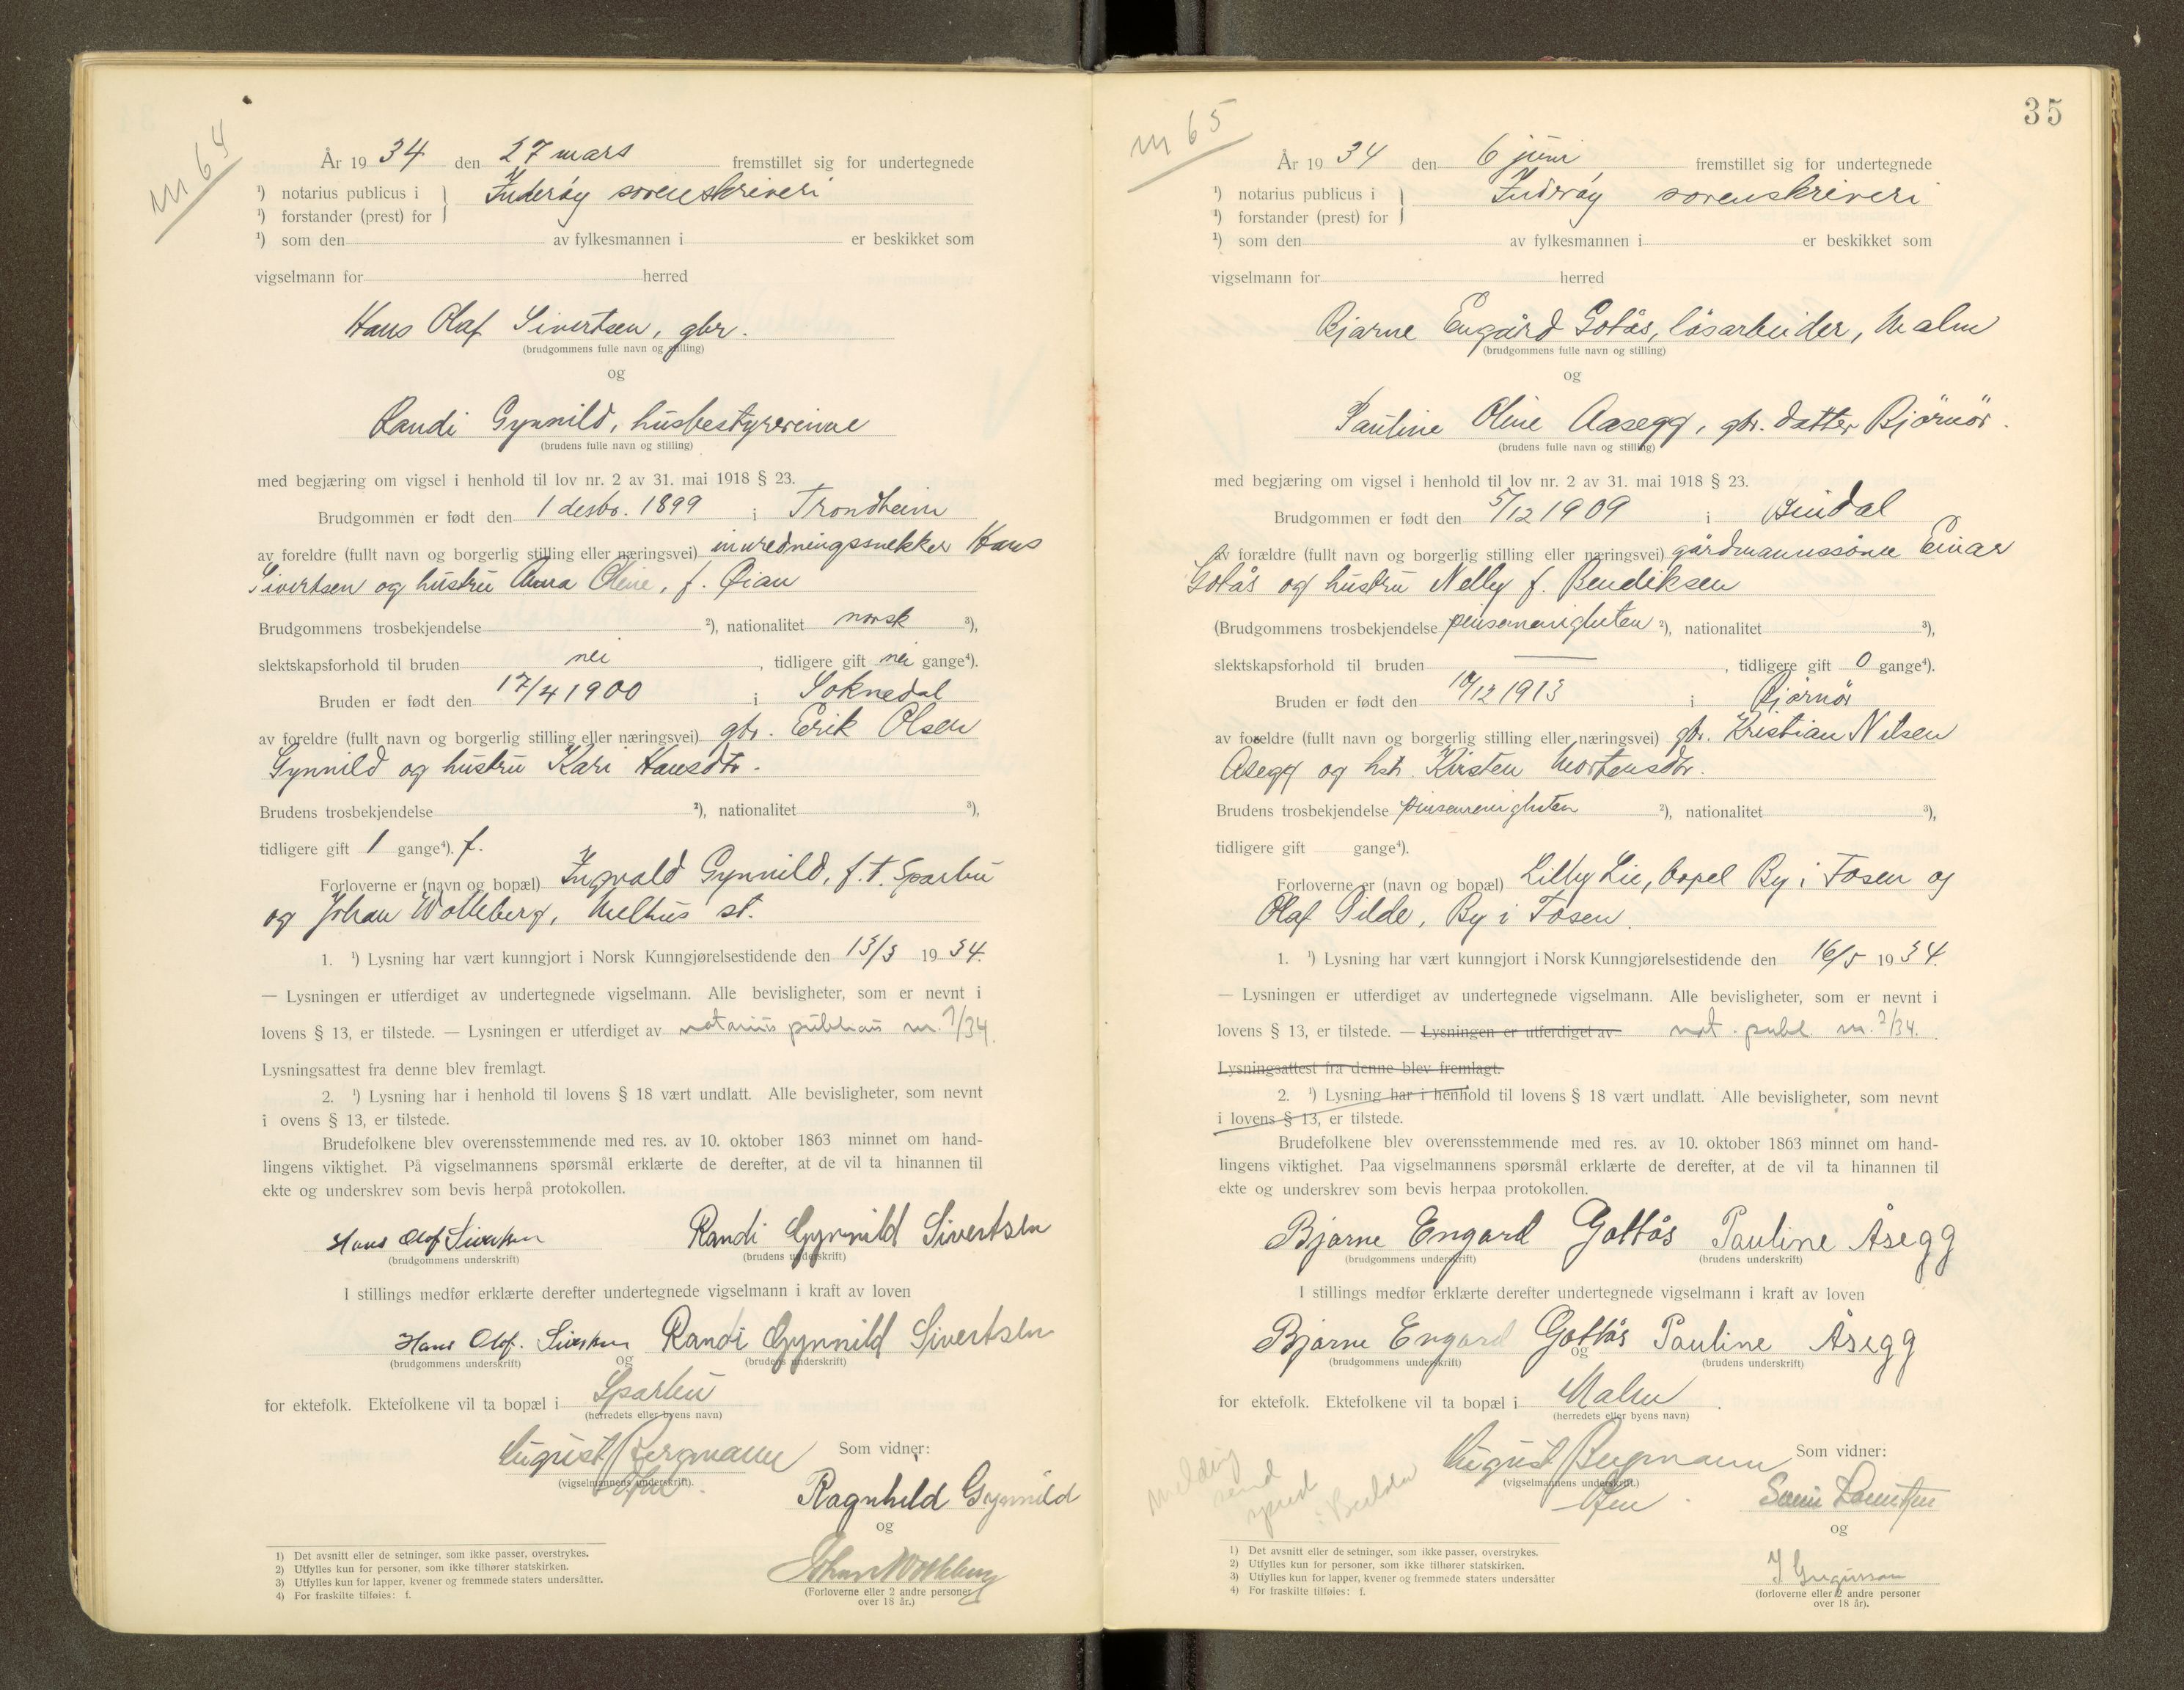 m 64
År 1934 den 27 mars fremstillet sig for undertegnede
¹) notarius publicus i } Inderøy sorenskriveri
¹) forstander (prest) for
¹) som den av fylkesmannen i er beskikket som
vigselmann for herred
Hans Olaf Sivertsen, gbr.
(brudgommens fulle navn og stilling)
og
Randi Gynnild, husbestyrerinne
(brudens fulle navn og stilling)
med begjæring om vigsel i henhold til lov nr. 2 av 31. mai 1918 § 23.
Brudgommen er født den 1 desbr. 1899 i Trondheim
av foreldre (fullt navn og borgerlig stilling eller næringsvei) innredningssnekker Hans
Sivertsen og hustru Anna Oline, f. Øian
Brudgommens trosbekjendelse ²), nationalitet norsk ³),
slektskapsforhold til bruden nei, tidligere gift nei gange⁴).
Bruden er født den 17/4 1900 i Soknedal
av foreldre (fullt navn og borgerlig stilling eller næringsvei) gbr. Erik Olsen
Gynnild og hustru Kari Hansdtr.
Brudens trosbekjendelse ²), nationalitet ³),
tidligere gift 1 gange⁴). f.
Forloverne er (navn og bopæl) Ingvald Gynnild, f.t. Sparbu
og Johan Wolleberg, Melhus st.
1. ¹) Lysning har vært kunngjort i Norsk Kunngjørelsestidende den 13/3 1934.
— Lysningen er utferdiget av undertegnede vigselmann. Alle bevisligheter, som er nevnt i
lovens § 13, er tilstede. — Lysningen er utferdiget av notarius publicus nr. 1/34
Lysningsattest fra denne blev fremlagt.
2. ¹) Lysning har i henhold til lovens § 18 vært undlatt. Alle bevisligheter, som nevnt
i ovens § 13, er tilstede.
Brudefolkene blev overensstemmende med res. av 10. oktober 1863 minnet om hand-
lingens viktighet. På vigselmannens spørsmål erklærte de derefter, at de vil ta hinannen til
ekte og underskrev som bevis herpå protokollen.
Hans Olof Sivertsen Randi Gynnild Sivertsen
(brudgommens underskrift) (brudens underskrift)
I stillings medfør erklærte derefter undertegnede vigselmann i kraft av loven
Hans Olof. Sivertsen og Randi Gynnild Sivertsen
(brudgommens underskrift) (brudens underskrift)
for ektefolk. Ektefolkene vil ta bopæl i Sparbu
(herredets eller byens navn)
August Bergmann Som vidner:
(vigselmannens underskrift).
Ragnhild Gynnild
og
Johan Wolleberg
(Forloverne eller 2 andre personer
over 18 år.)
1) Det avsnitt eller de setninger, som ikke passer, overstrykes.
2) Utfylles kun for personer, som ikke tilhører statskirken.
3) Utfylles kun for lapper, kvener og fremmede staters undersåtter.
4) For fraskilte tilføies: f.
35
m 65
År 1934 den 6 juni fremstillet sig for undertegnede
¹) notarius publicus i } Inderøy sorenskriveri
¹) forstander (prest) for
¹) som den av fylkesmannen i er beskikket som
vigselmann for herred
Bjarne Engård Gotås, løsarbeider, Malm
(brudgommens fulle navn og stilling)
og
Pauline Oline Aasegg, gbr. datter Bjørnør.
(brudens fulle navn og stilling)
med begjæring om vigsel i henhold til lov nr. 2 av 31. mai 1918 § 23.
Brudgommen er født den 5/12 1909 i Bindal
av forældre (fullt navn og borgerlig stilling eller næringsvei) gårdmannssønn Einar
Gotås og hustru Nelly f. Bendiksen
(Brudgommens trosbekjendelse pinsemenigheten ²), nationalitet ³),
slektskapsforhold til bruden —, tidligere gift 0 gange⁴).
Bruden er født den 10/12 1913 i Bjørnør
av foreldre (fullt navn og borgerlig stilling eller næringsvei) gbr. Kristian Nilsen
Åsegg og hstr. Kirsten Mortensdtr.
Brudens trosbekjendelse pinsemenigheten ²), nationalitet ³),
tidligere gift gange⁴).
Forloverne er (navn og bopæl) Lilly Lie, bopel By i Fosen og
Olaf Gilde, By i Fosen.
1. ¹) Lysning har vært kunngjort i Norsk Kunngjørelsestidende den 16/5 1934.
— Lysningen er utferdiget av undertegnede vigselmann. Alle bevisligheter, som er nevnt i
lovens § 13, er tilstede. — Lysningen er utferdiget av not. publ. nr. 2/34.
Lysningsattest fra denne blev fremlagt.
2. ¹) Lysning har i henhold til lovens § 18 vært undlatt. Alle bevisligheter, som nevnt
i lovens § 13, er tilstede.
Brudefolkene blev overensstemmende med res. av 10. oktober 1863 minnet om hand-
lingens viktighet. Paa vigselmannens spørsmål erklærte de derefter, at de vil ta hinannen til
ekte og underskrev som bevis herpaa protokollen.
Bjarne Engard Gottås Pauline Åsegg
(brudgommens underskrift) (brudens underskrift)
I stillings medfør erklærte derefter undertegnede vigselmann i kraft av loven
Bjarne Engard Gottås og Pauline Åsegg
(brudgommens underskrift) (brudens underskrift)
for ektefolk. Ektefolkene vil ta bopæl i Malm.
(herredets eller byens navn)
August Bergmann Som vidner:
(vigselmannens underskrift.)
og
(forloverne eller 2 andre personer
over 18 år).
1) Det avsnitt eller de setninger, som ikke passer, overstrykes.
2) Utfylles kun for personer, som ikke tilhører statskirken.
3) Utfylles kun for lapper, kvener og fremmede staters undersåtter
4) For fraskilte tilføies: f.